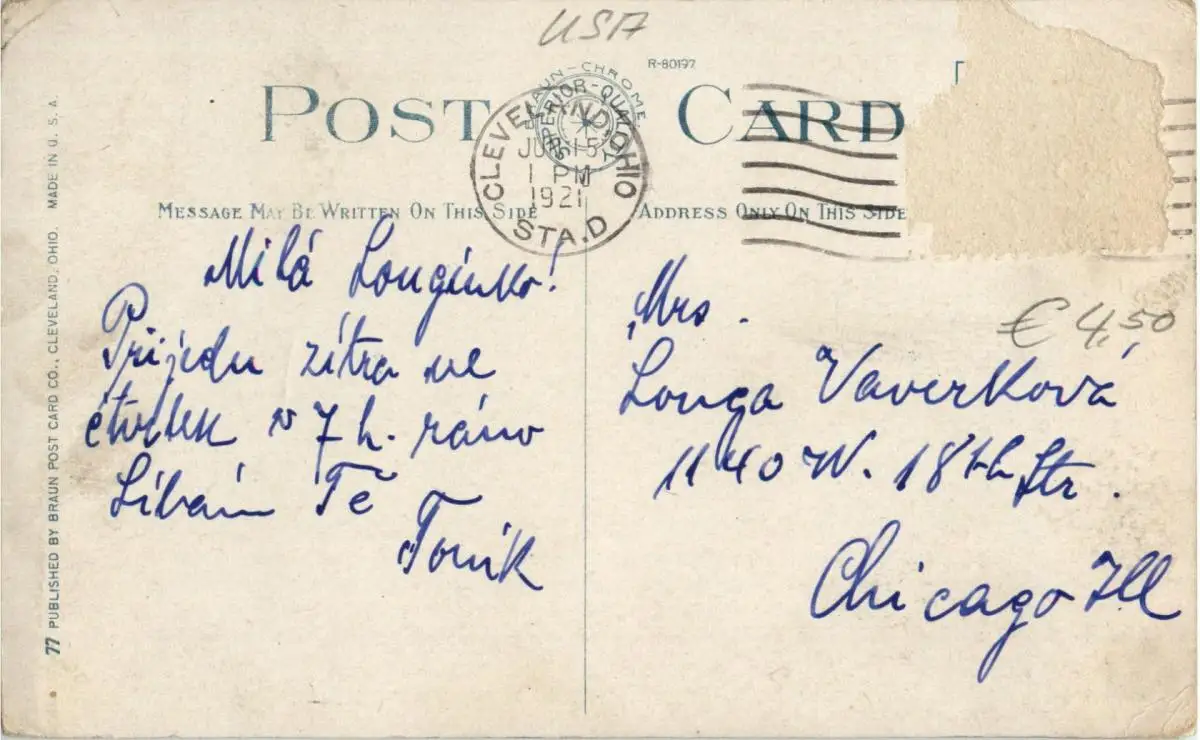 USA
R-80197
POST CARD
BRAUN-CHROME
SUPERIOR-QUALITY
CLEVELAND, OHIO
JUN 15
1 PM
1921
STA. D
MESSAGE MAY BE WRITTEN ON THIS SIDE
ADDRESS ONLY ON THIS SIDE
Milá Louginko!
Prijedu zítra ve
čtvrtek v 7 h. ráno
Líbám Tě
Toník
Mrs.
Louga Vaverková
1140 W. 18th Str.
Chicago Ill
€ 4,50
77 PUBLISHED BY BRAUN POST CARD CO., CLEVELAND, OHIO. MADE IN U. S. A.